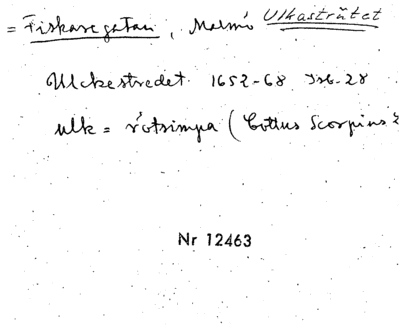 = Fiskaregatan, Malmö Ulkasträtet
Ulckestredet 1652-68 Jsb. 28
ulk = rötsimpa (Cottus Scorpius
Nr 12463